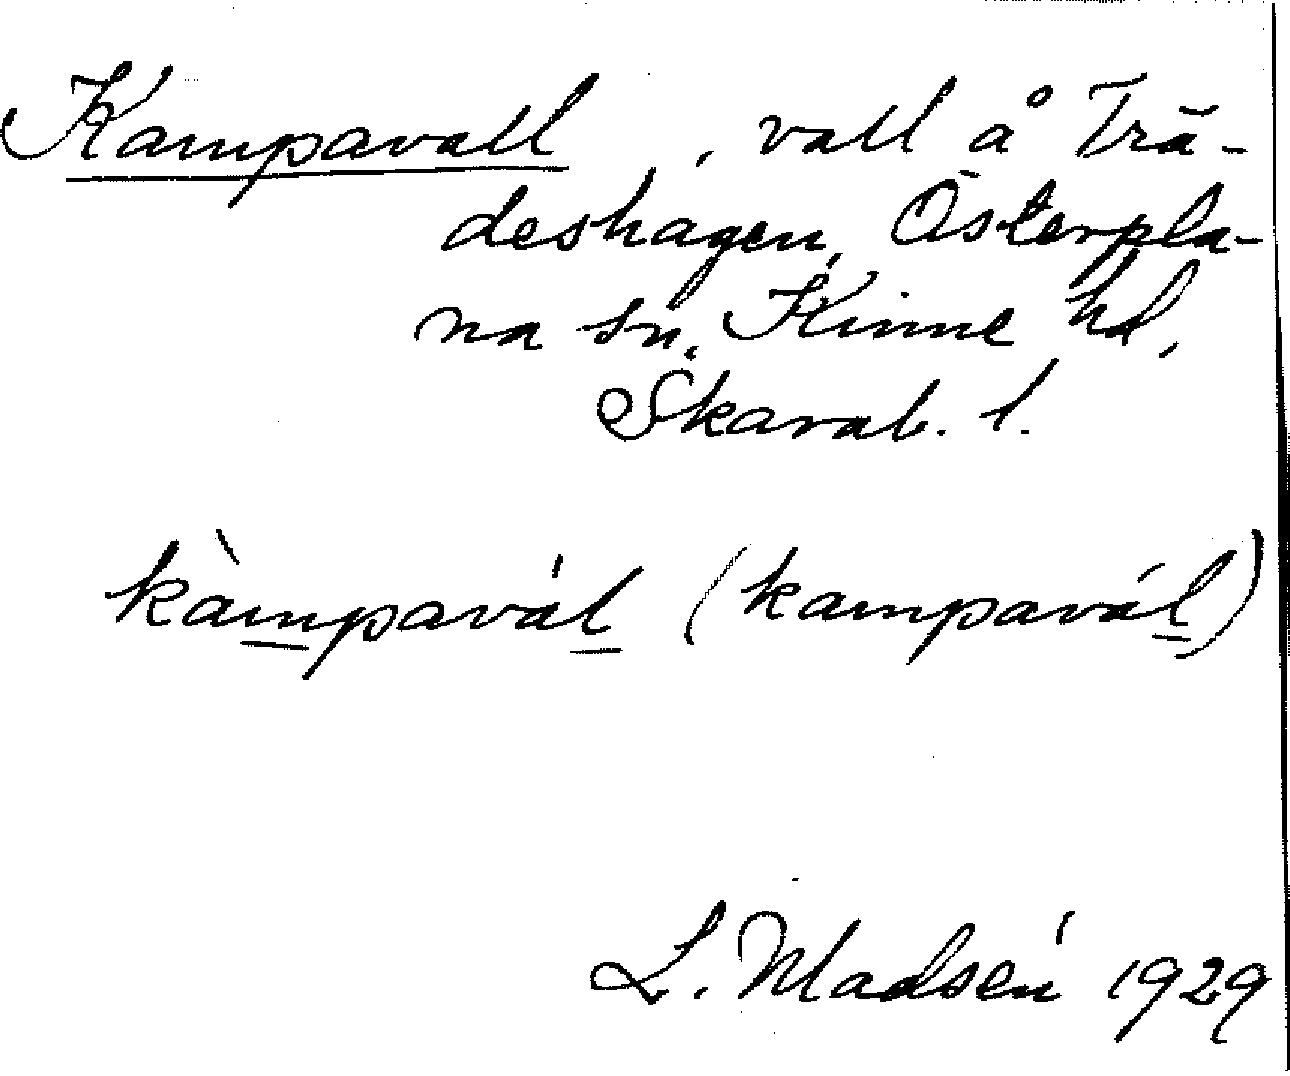 Kampavall, vall å Trä-
deshagen, Österpla-
na sn, Kinne hd,
Skarab. l.
kàmpavál (kampavál)
L. Madsén 1929